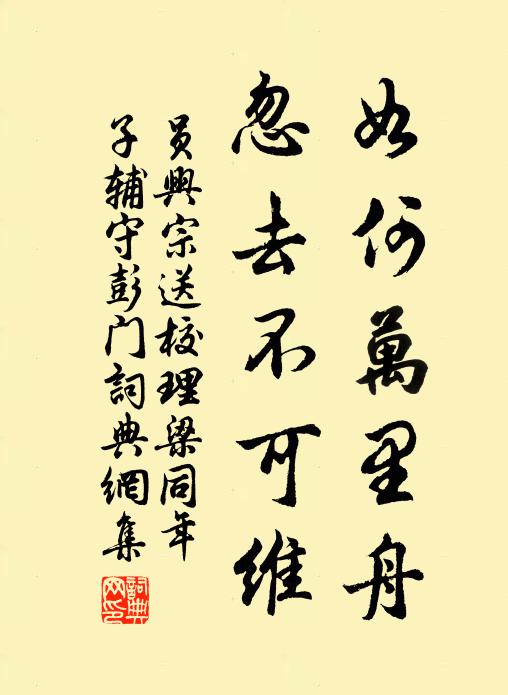 如何萬里舟
忽去不可維
员興宗送校理梁同年
子辅守彭门詞典網集
詞典網印